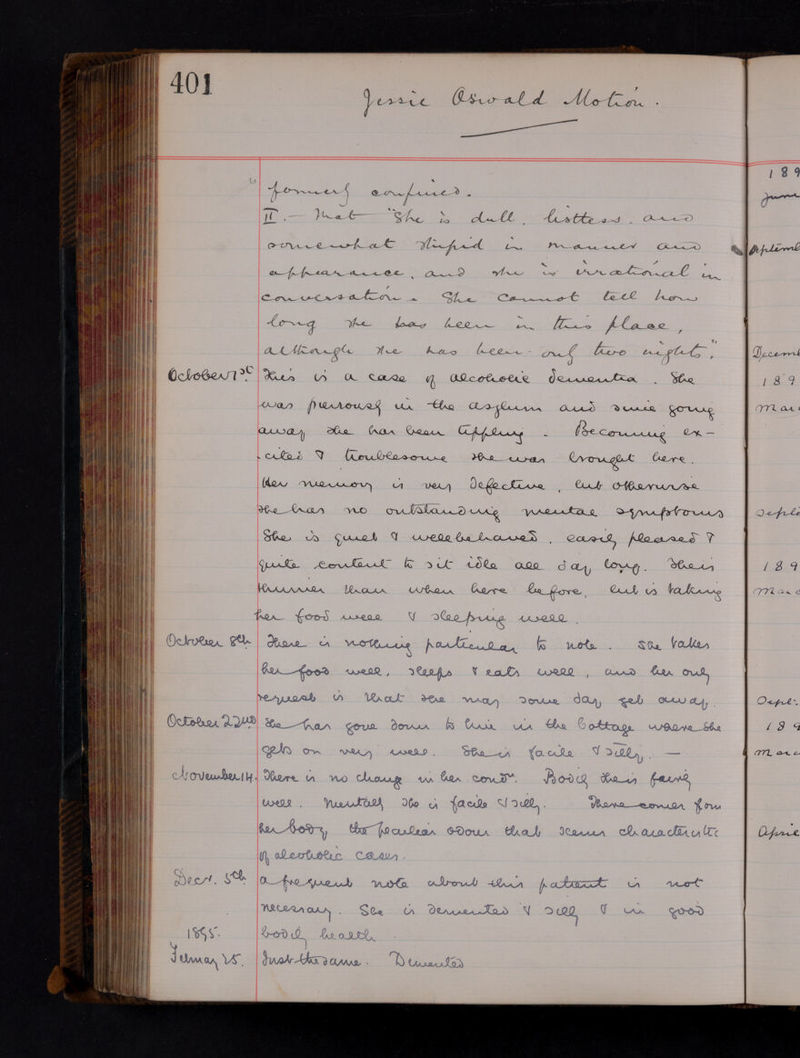 401
Jessie Oswald Motion.
formerly confined.
II. — That "She is dull, listless and
somewhat stupid in manner and
appearance, and she is irrational in
conversation. She cannot tell how
long she has been in this place,
although she has been only two nights".
October 1st This is a case of alcoholic dementia. She
was previously in the asylum and since going
away she has been tippling. Becoming ex-
cited & troublesome she was brought here.
Her memory is very defective, but otherwise
she has no outstanding mental symptoms
She is quiet & well behaved, easily pleased &
quite content to sit idle all day long. She is
thinner than when here before, but is taking
her food well & sleeping well.
October 8th There is nothing particular to note. She takes
her food well, sleeps & eats well, and her only
request is that she may some day get away.
October 22nd She has gone down to live in the Cottage where she
gets on very well. She is facile & silly. —
November 14. There is no change in her condn. Bodily she is fairly
well. Mentally she is facile & silly. There comes from
her body the peculiar odour that seems characteristic
of alcoholic cases.
Decr. 5th A frequent note about this patient is not
necessary. She is demented & silly & in good
1895. bodily health.
25. Just the same. Demented
189
June
Septemb
Decemb
189
Mar
Septe
189
Marc
Sept.
189
Marc
April